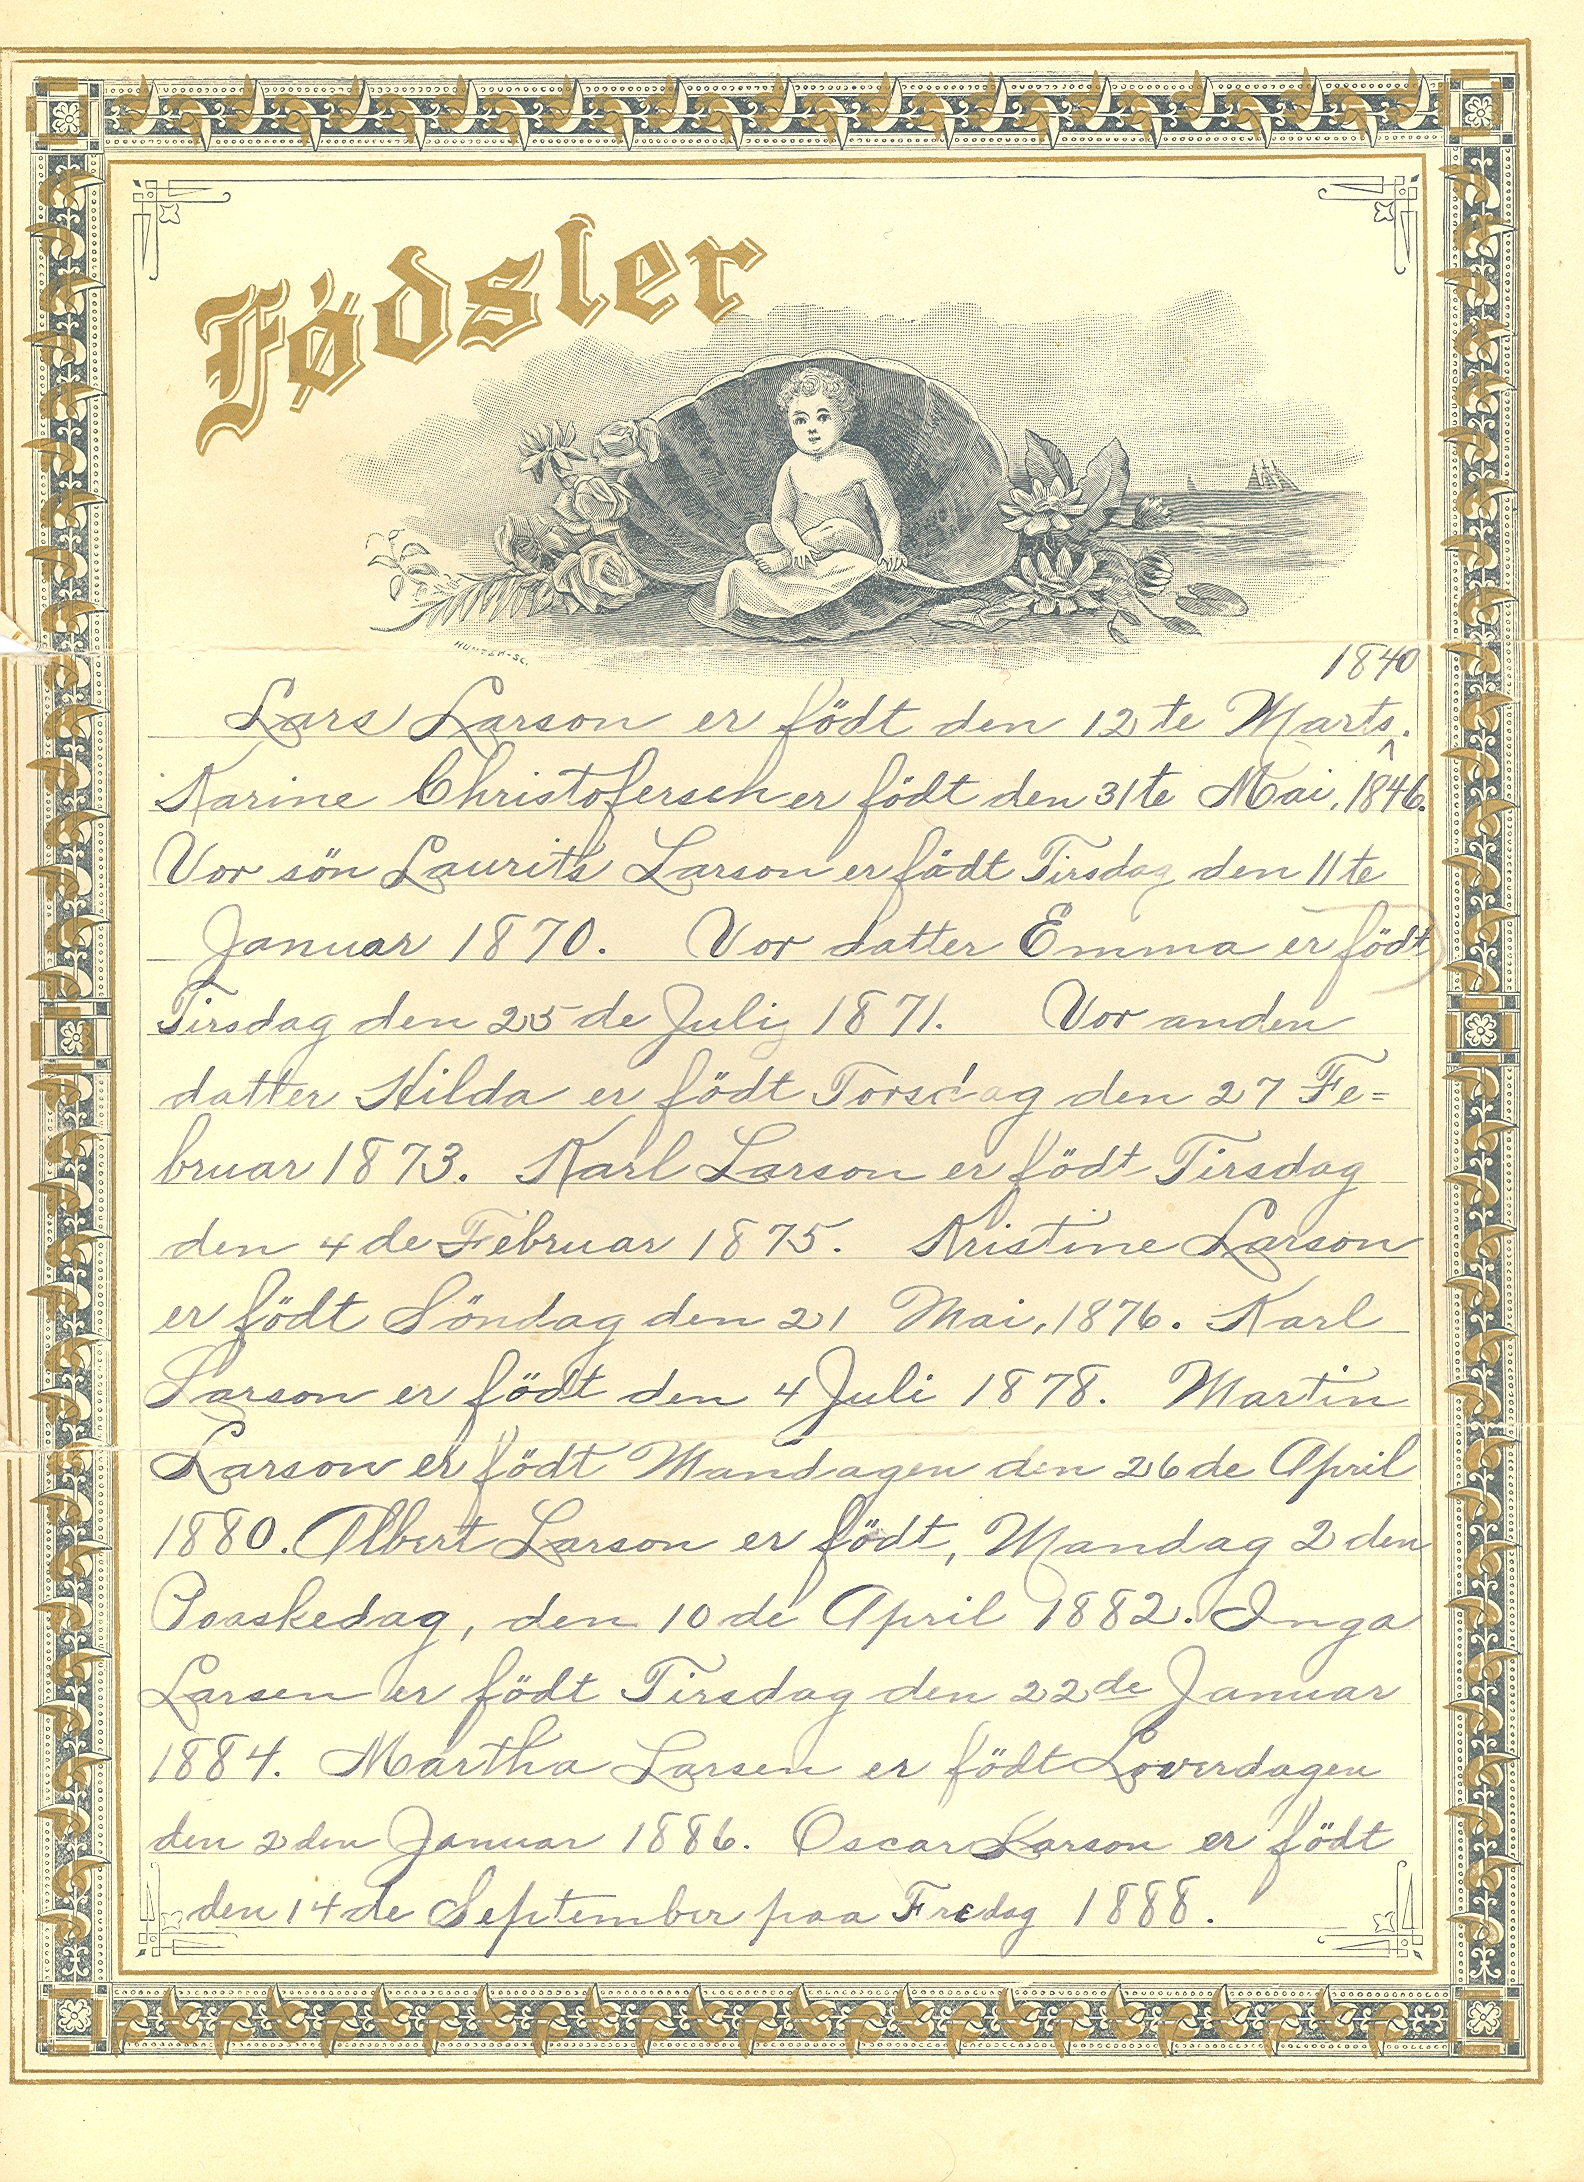 Fødsler
HUNTER-SC.
1840
Lars Larson er födt den 12te Marts.
Karine Christofersen er födt den 31te Mai, 1846.
Vor sön Laurits Larson er födt Tirsdag den 11te
Januar 1870. Vor datter Emma er födt
Tirsdag den 25de Juli 1871. Vor anden
datter Hilda er födt Torsdag den 27 Fe=
bruar 1873. Karl Larson er födt Tirsdag
den 4de Februar 1875. Kristine Larson
er födt Söndag den 21 Mai, 1876. Karl
Larson er födt den 4 Juli 1878. Martin
Larson er födt Mandagen den 26de April
1880. Albert Larson er födt, Mandag 2den
Paaskedag, den 10de April 1882. Inga
Larsen er födt Tirsdag den 22de Januar
1884. Martha Larsen er födt Loverdagen
den 2den Januar 1886. Oscar Larson er födt
den 14de September paa Fredag 1888.